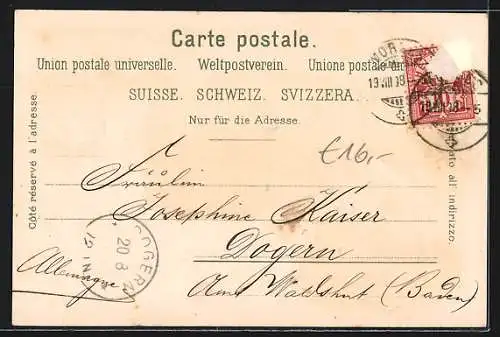 Carte postale.
Union postale universelle. Weltpostverein. Unione postale
SUISSE. SCHWEIZ. SVIZZERA.
Nur für die Adresse.
Côté réservé à l'adresse.
all' indirizzo.
€16,-
Fräulein
Josephine Kaiser
Dogern
Amt Waldshut (Baden)
Allemagne
DOGERN
20 8